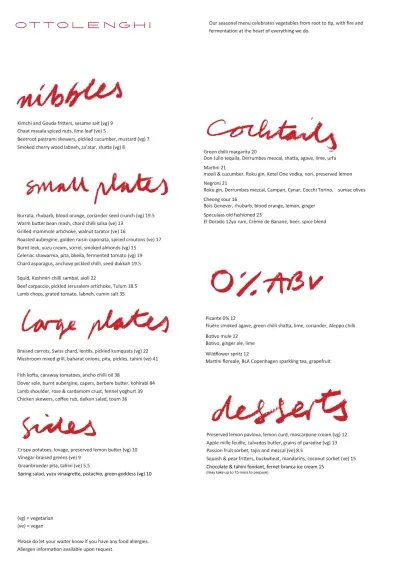 OTTOLENGHI
Our seasonal menu celebrates vegetables from root to tip, with fire and
fermentation at the heart of everything we do.
nibbles
Kimchi and Gouda fritters, sesame salt (vg) 9
Chaat masala spiced nuts, lime leaf (ve) 5
Beetroot pastrami skewers, pickled cucumber, mustard (vg) 7
Smoked cherry wood labneh, za'atar, shatta (vg) 8
small plates
Burrata, rhubarb, blood orange, coriander seed crunch (vg) 19.5
Warm butter bean mash, chard chilli salsa (ve) 13
Grilled marinate artichoke, walnut tarator (ve) 16
Roasted aubergine, golden raisin caponata, spiced croutons (ve) 17
Burnt leek, yuzu cream, sorrel, smoked almonds (vg) 15
Celeriac shawarma, pita, bkeila, fermented tomato (vg) 19
Chard asparagus, anchovy pickled chilli, seed dukkah 19.5
Squid, Kashmiri chilli sambal, aioli 22
Beef carpaccio, pickled Jerusalem artichoke, Tulum 18.5
Lamb chops, grated tomato, labneh, cumin salt 35
large plates
Braised carrots, Swiss chard, lentils, pickled kumquats (vg) 22
Mushroom mixed grill, baharat onions, pita, pickles, tahini (ve) 41
Fish kofta, caraway tomatoes, ancho chilli oil 38
Dover sole, burnt aubergine, capers, berbere butter, kohlrabi 84
Lamb shoulder, rose & cardamom crust, fennel yoghurt 39
Chicken skewers, coffee rub, daikon salad, toum 36
sides
Crispy potatoes, lovage, preserved lemon butter (vg) 10
Vinegar-braised greens (ve) 9
Graanbroeder pita, tahini (ve) 5.5
Spring salad, yuzu vinaigrette, pistachio, green goddess (vg) 10
(vg) = vegetarian
(ve) = vegan
Please do let your waiter know if you have any food allergies.
Allergen information available upon request.
Cocktails
Green chilli margarita 20
Don Julio tequila, Derrumbes mezcal, shatta, agave, lime, urfa
Martini 21
mooli & cucumber. Roku gin, Ketel One vodka, nori, preserved lemon
Negroni 21
Roku gin, Derrumbes mezcal, Campari, Cynar, Cocchi Torino, sumac olives
Cheong sour 16
Bols Genever, rhubarb, blood orange, lemon, ginger
Speculaas old fashioned 23
El Dorado 12yo rum, Crème de Banane, beer, spice blend
0% ABV
Picante 0% 12
Fluère smoked agave, green chilli shatta, lime, coriander, Aleppo chilli
Botivo mule 12
Botivo, ginger ale, lime
Wildflower spritz 12
Martini floreale, BLA Copenhagen sparkling tea, grapefruit
desserts
Preserved lemon pavlova, lemon curd, mascarpone cream (vg) 12
Apple mille feuille, calvados butter, grains of paradise (vg) 13
Passion fruit sorbet, tajin and mezcal (ve) 8.5
Squash & pear fritters, buckwheat, mandarins, coconut sorbet (ve) 15
Chocolate & tahini fondant, fernet branca ice cream 15
(may take up to 15 mins to prepare)